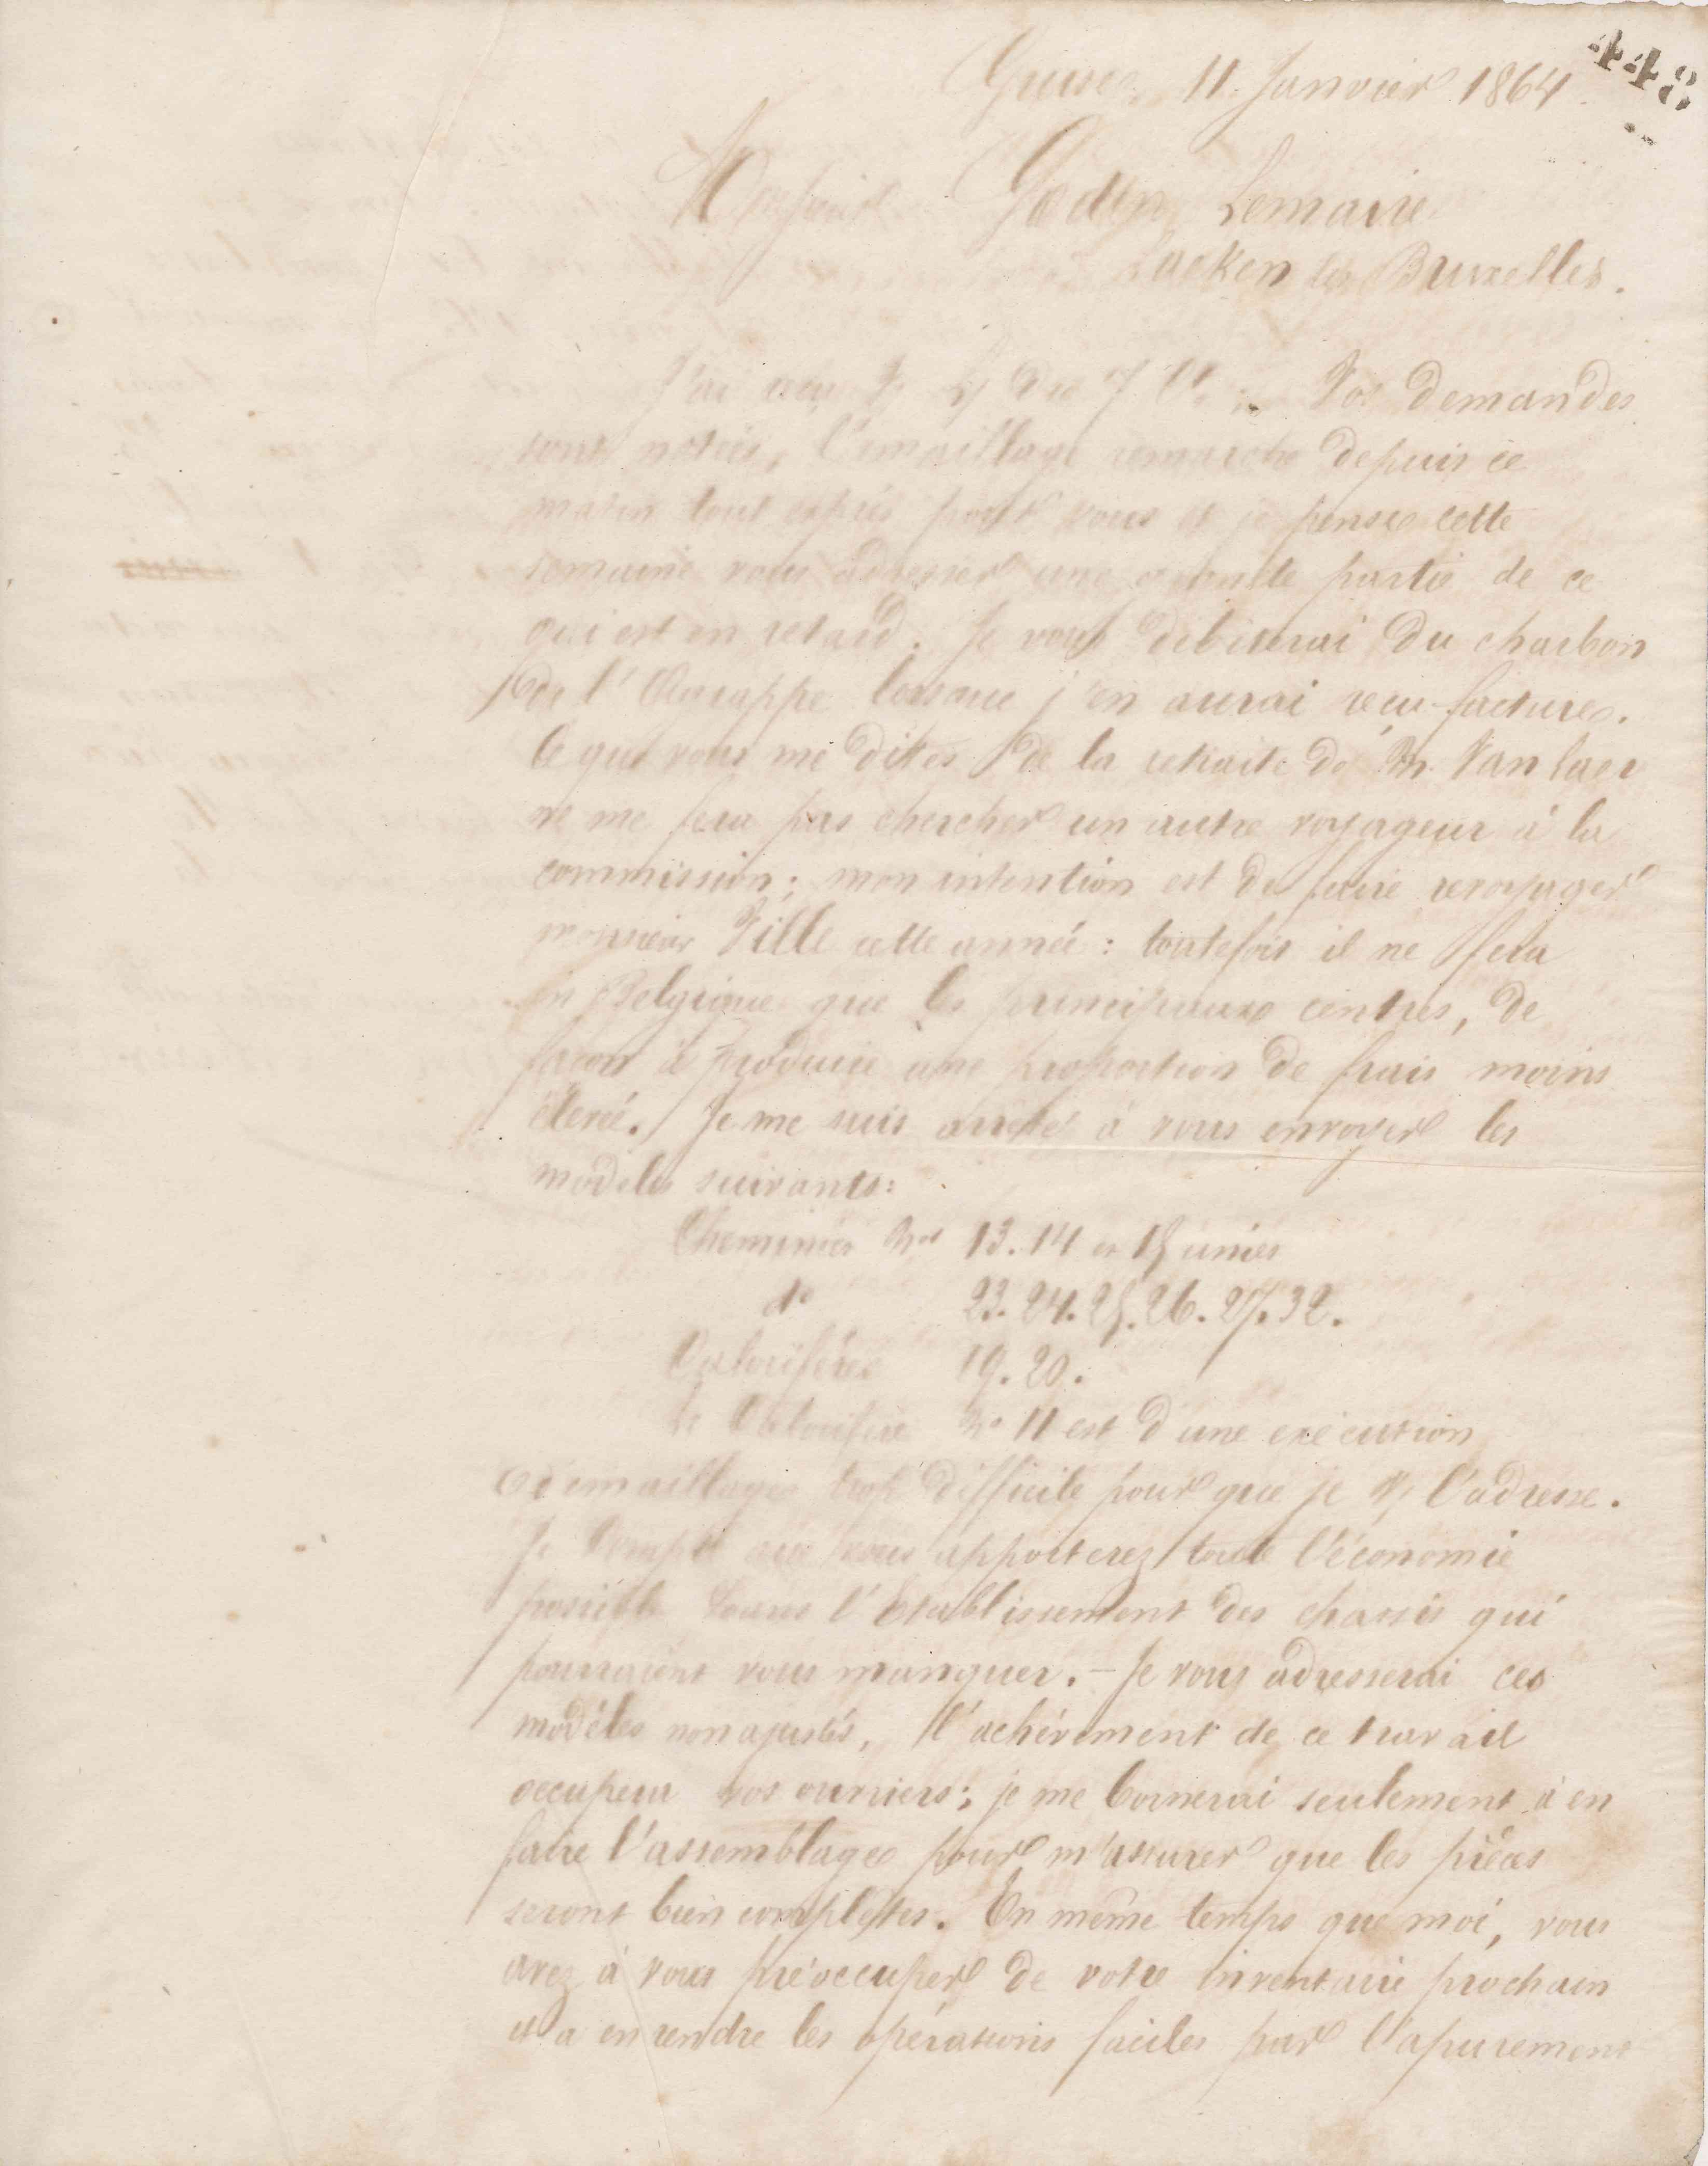 448
Guise, 11 Janvier 1864
Monsieur Godin Lemaire
Laeken lez Bruxelles.
J'ai reçu V. L. du 7 Ct. Vos demandes
sont notées, l'émaillage remarche depuis ce
matin tout exprès pour vous et je pense cette
semaine vous adresser une grande partie de ce
qui est en retard. Je vous débiterai du charbon
de l'Agrappe lorsque j'en aurai reçu factures.
Ce que vous me dites de la retraite de M. Van Laer
ne me fera pas chercher un autre voyageur à la
commission; mon intention est de faire revoyager
monsieur Fille cette année: toutefois il ne fera
en Belgique que les principaux centres, de
façon à produire une proportion de frais moins
élevée. Je me suis arrêté à vous envoyer les
modèles suivants:
Cheminées Nos 13. 14 et 15 unies
do 23. 24. 25. 26. 27. 32.
Calorifères 19. 20.
Le Calorifère No 11 est d'une exécution
et émaillage trop difficile pour que je V. l'adresse.
Je compte que vous apporterez toute l'économie
possible dans l'Etablissement des chassis qui
pourraient vous manquer. - Je vous adresserai ces
modèles non ajustés, l'achèvement de ce travail
occupera vos ouvriers; je me bornerai seulement à en
faire l'assemblage pour m'assurer que les pièces
seront bien complètes. En même temps que moi, vous
avez à vous préoccuper de votre inventaire prochain
et à en rendre les opérations faciles par l'apurement